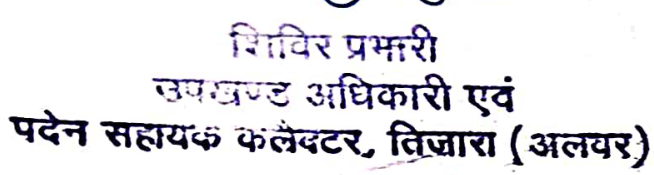 शिविर प्रभारी
उपखण्ड अधिकारी एवं
पदेन सहायक कलैक्टर, तिजारा (अलवर)